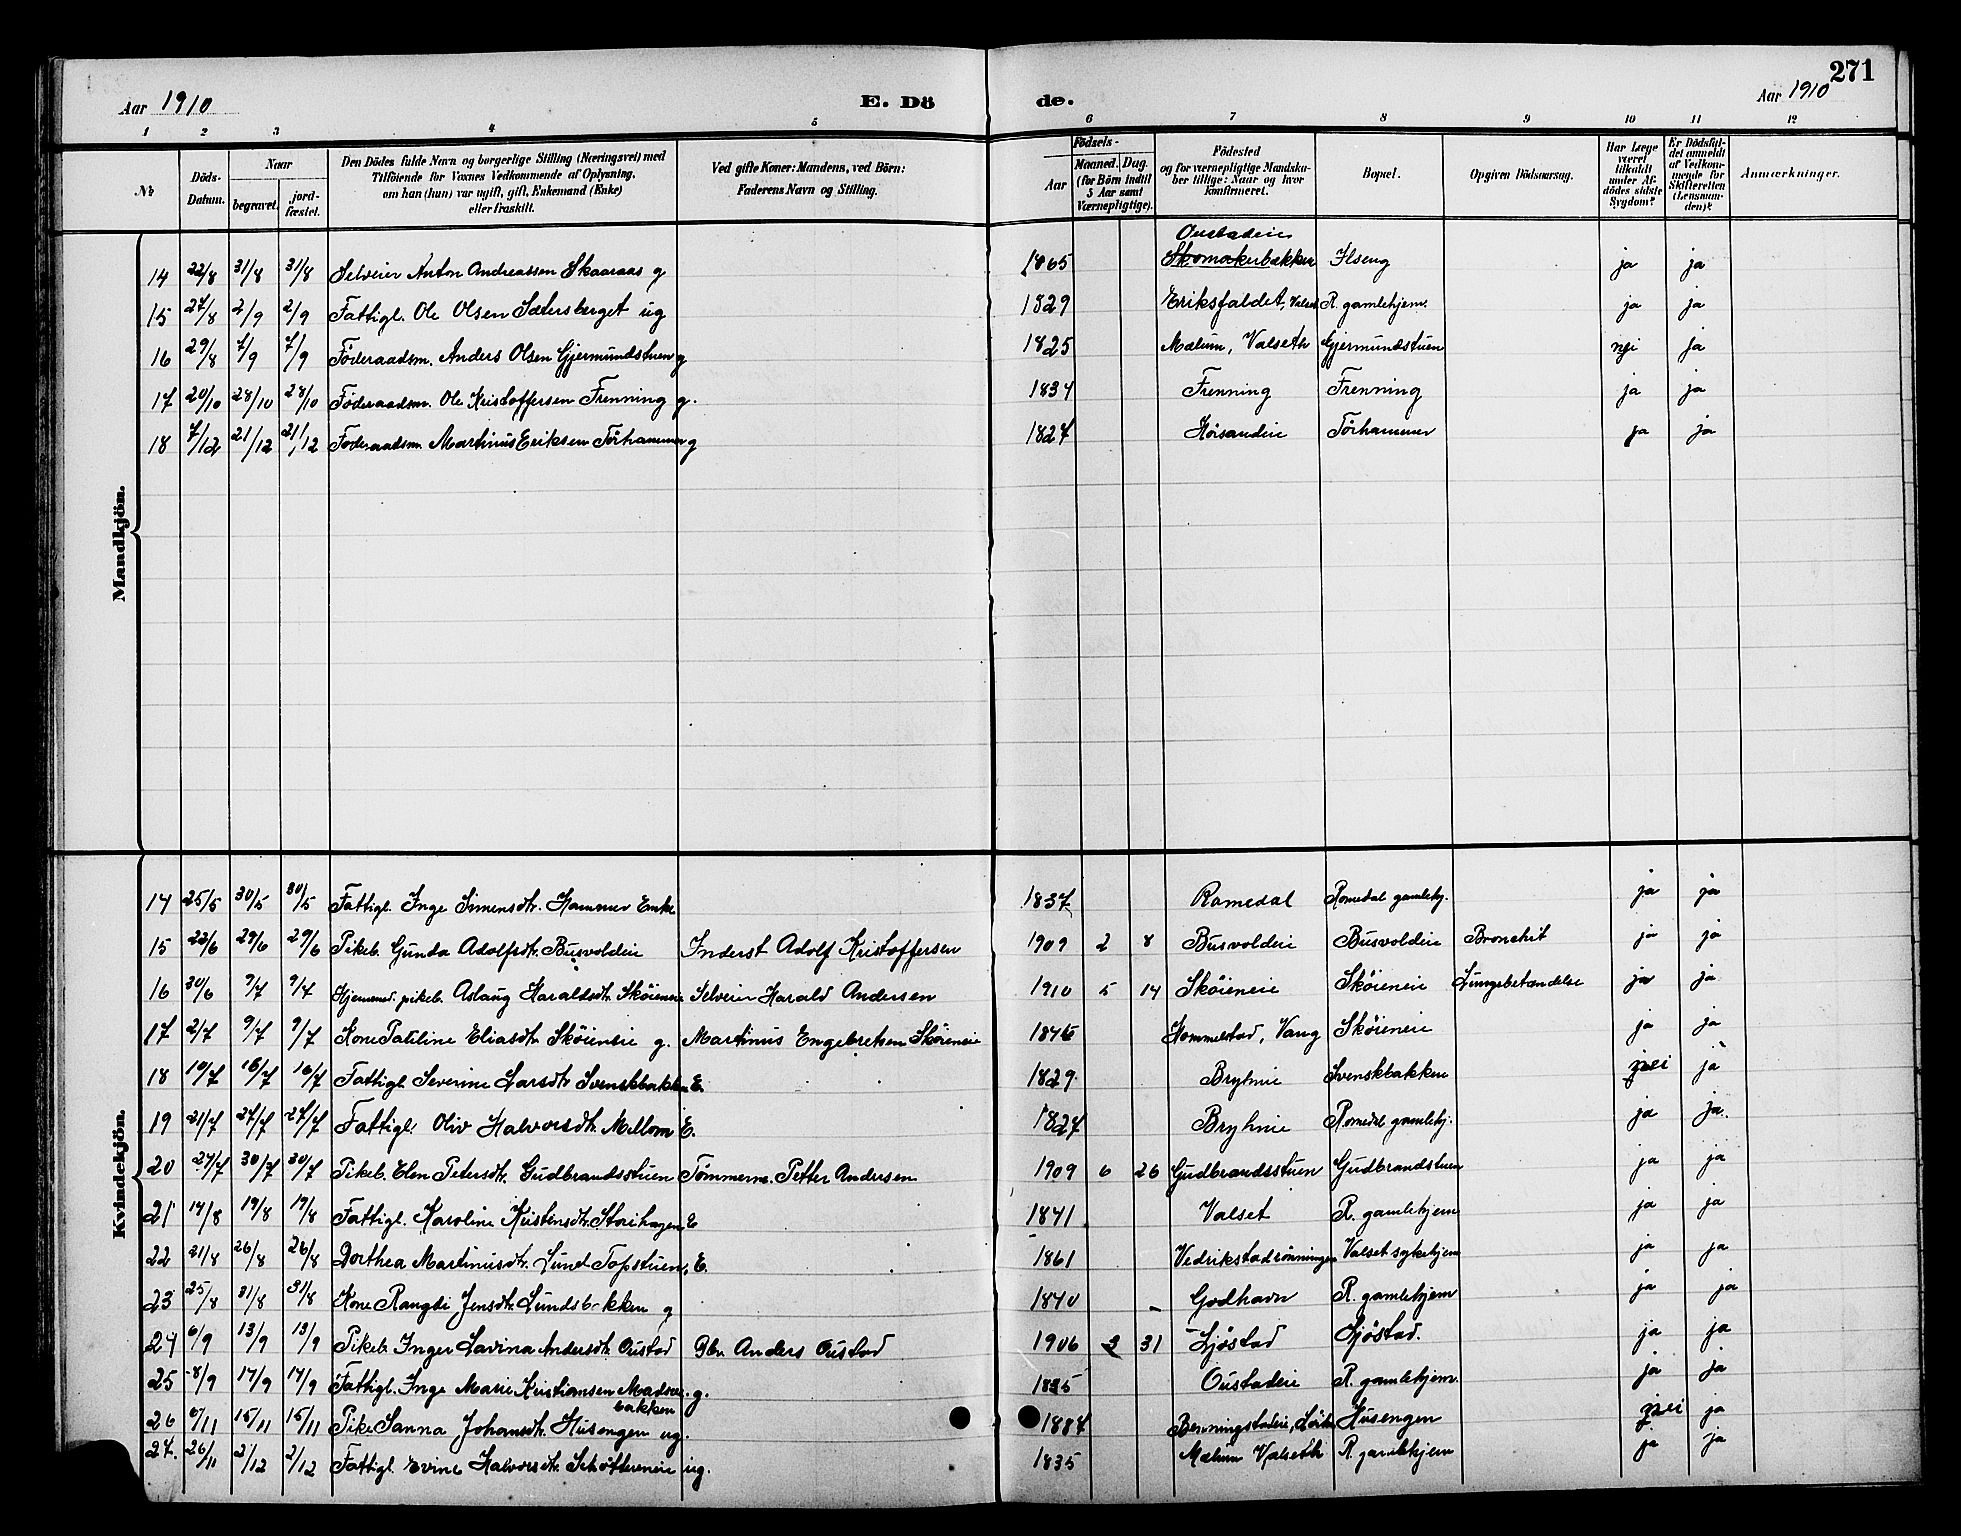 271
Aar 1910 E. Dö de. Aar 1910
1 2 3 4 5 6 7 8 9 10 11 12
№
Döds-Datum.
Naar
begravet.
jord-fæstet.
Den Dödes fulde Navn og borgerlige Stilling (Næringsvei) med
Tilföiende for Voxnes Vedkommende af Oplysning,
om han (hun) var ugift, gift, Enkemand (Enke)
eller fraskilt.
Ved gifte Koner: Mandens, ved Börn:
Faderens Navn og Stilling.
Födsels-
Aar
Maaned. Dag.
(for Börn indtil
5 Aar samt
Værnepligtige).
Födested
og for værnepligtige Mandska-
ber tillige: Naar og hvor
konfirmeret.
Bopæl.
Opgiven Dödsaarsag.
Har Læge
været
tilkaldt
under Af-
dödes sidste
Sygdom?
Er Dödsfal-
det anmeldt
af Vedkom-
mende for
Skifteretten
(Lensman-
den)?
Anmærkninger.
Mandkjön.
Oustadeie
14 22/8 31/8 31/8 Selveier Anton Andreassen Skaaraas g 1865 Skomakerbakken Ilseng ja ja
15 27/8 2/9 2/9 Fattigl. Ole Olsen Sætersberget ug 1829 Eriksfaldet, Valset R. gamlehjem. ja ja
16 29/8 7/9 7/9 Föderaadsm. Anders Olsen Gjermundstuen g 1825 Mælum, Valseth Gjermundstuen nei ja
17 20/10 28/10 28/10 Föderaadsm. Ole Kristoffersen Frenning g. 1834 Frenning Frenning ja ja
18 7/12 21/12 21/12 Föderaadsm. Martinus Eriksen Törhammer g 1827 Höisandeie Törhammer ja ja
Kvindekjön.
14 25/5 30/5 30/5 Fattigl. Inge Simensdtr. Hammer Enke 1837 Romedal Romedal gamlehj. ja ja
15 23/6 29/6 29/6 Pikeb. Gunda Adolfsdtr. Busvoldeie Inderst Adolf Kristoffersen 1909 2 8 Busvoldeie Busvoldeie Bronchit ja ja
16 30/6 9/7 9/7 Hjemmed. pikeb. Aslaug Haraldsdtr. Sköieneie Selveier Harald Andersen 1910 5 14 Sköieneie Sköieneie Lungebetændelse ja ja
17 2/7 9/7 9/7 Kone Pauline Eliasdtr. Sköieneie g. Martinus Engebretsen Sköieneie 1846 Hommelstad, Vang Sköieneie ja ja
18 10/7 16/7 16/7 Fattigl. Severine Larsdtr. Svenskbakken E. 1829 Bryhnie Svenskbakken nei ja
19 21/7 27/7 27/7 Fattigl. Oliv Halvorsdtr. Mellom E. 1827 Bryhnie Romedal gamlehj. ja ja
20 24/7 30/7 30/7 Pikeb. Elen Petersdtr. Gudbrandsstuen Tömmerm. Petter Andersen 1909 6 26 Gudbrandsstuen Gudbrandstuen ja ja
21 14/8 19/8 19/8 Fattigl. Karoline Kristensdtr. Storihagen E 1841 Valset R. gamlehjem ja ja
22 21/8 26/8 26/8 Dorthea Martinusdtr. Lund Topstuen, E. 1861 Vedrikstadrönningen Valset sykehjem ja ja
23 25/8 31/8 31/8 Kone Rangdi Jensdtr. Lundsbakken g 1840 Godhavn R. gamlehjem ja ja
24 6/9 13/9 13/9 Pikeb. Inger Lavina Andersdtr. Oustad Gbr. Anders Oustad 1906 3 31 Ljöstad Ljöstad. ja ja
25 8/9 17/9 17/9 Fattigl. Inge Marie Kristiansen Madsse- g. 1835 Oustadeie R. gamlehjem. ja ja
bakken
26 6/11 15/11 15/11 Pike Sanna Johansdtr. Husengen ug. 1884 Benningstadeie, Löiten Husengen nei ja
27. 26/11 2/12 2/12 Fattigl. Evine Halvorsdtr. ug. 1835 Mælum Valseth R. gamlehjem ja ja